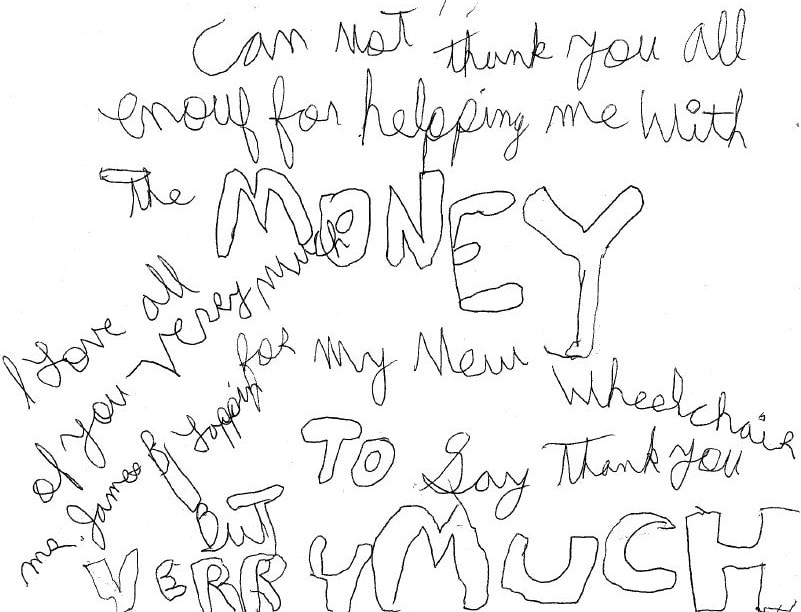 Can not thank you all
enouf for helpping me with
The MONEY
for my New Wheelchair
TO Say Thank you
But
VERRY MUCH
I love all
of you verry much
mr. James B